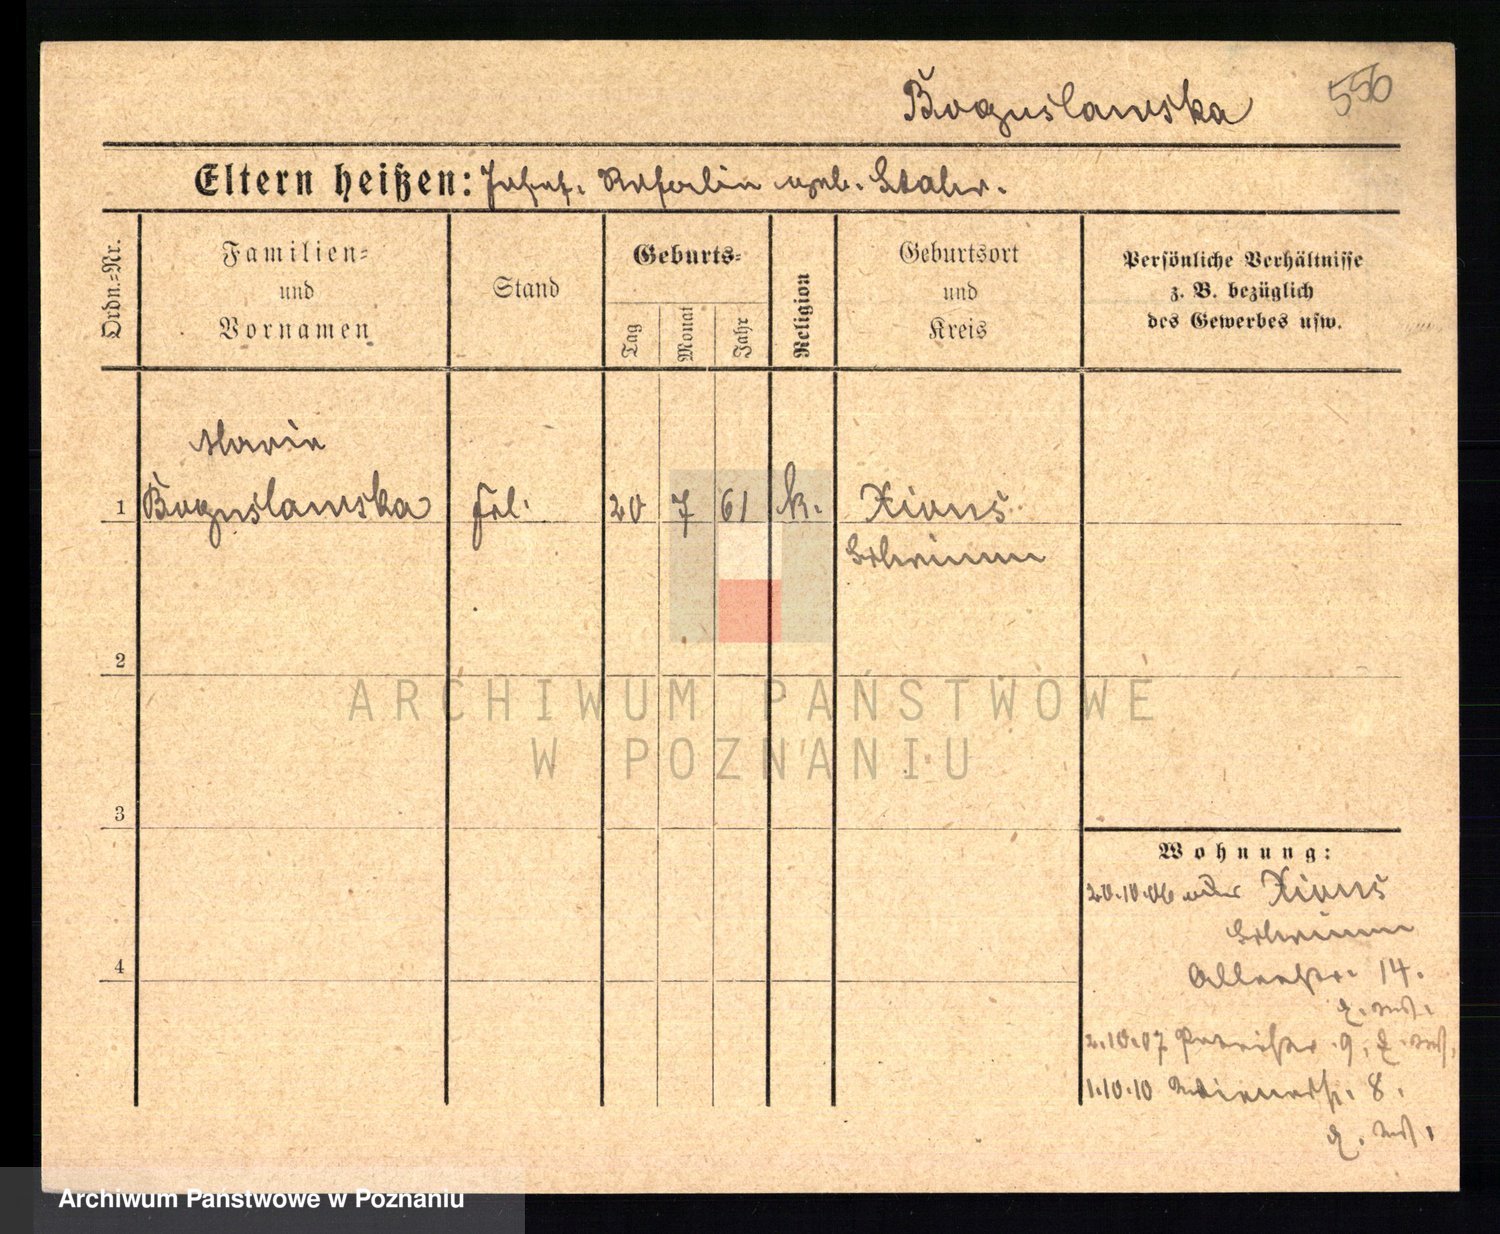 Boguslawska
550
Eltern heißen: Josef. Rosalin geb. Stahr.
Ordn.-Nr.
Familien-
und
Vornamen
Stand
Geburts-
Tag
Monat
Jahr
Religion
Geburtsort
und
Kreis
Persönliche Verhältnisse
z. B. bezüglich
des Gewerbes usw.
Marie
1 Boguslawska Frl. 20 7 61 k. Xions
Schrimm
2
3
4
Wohnung:
20.10.06 Xions
Schrimm
14.
2.10.07 9,
1.10.10 8.
ARCHIWUM PAŃSTWOWE
W POZNANIU
Archiwum Państwowe w Poznaniu